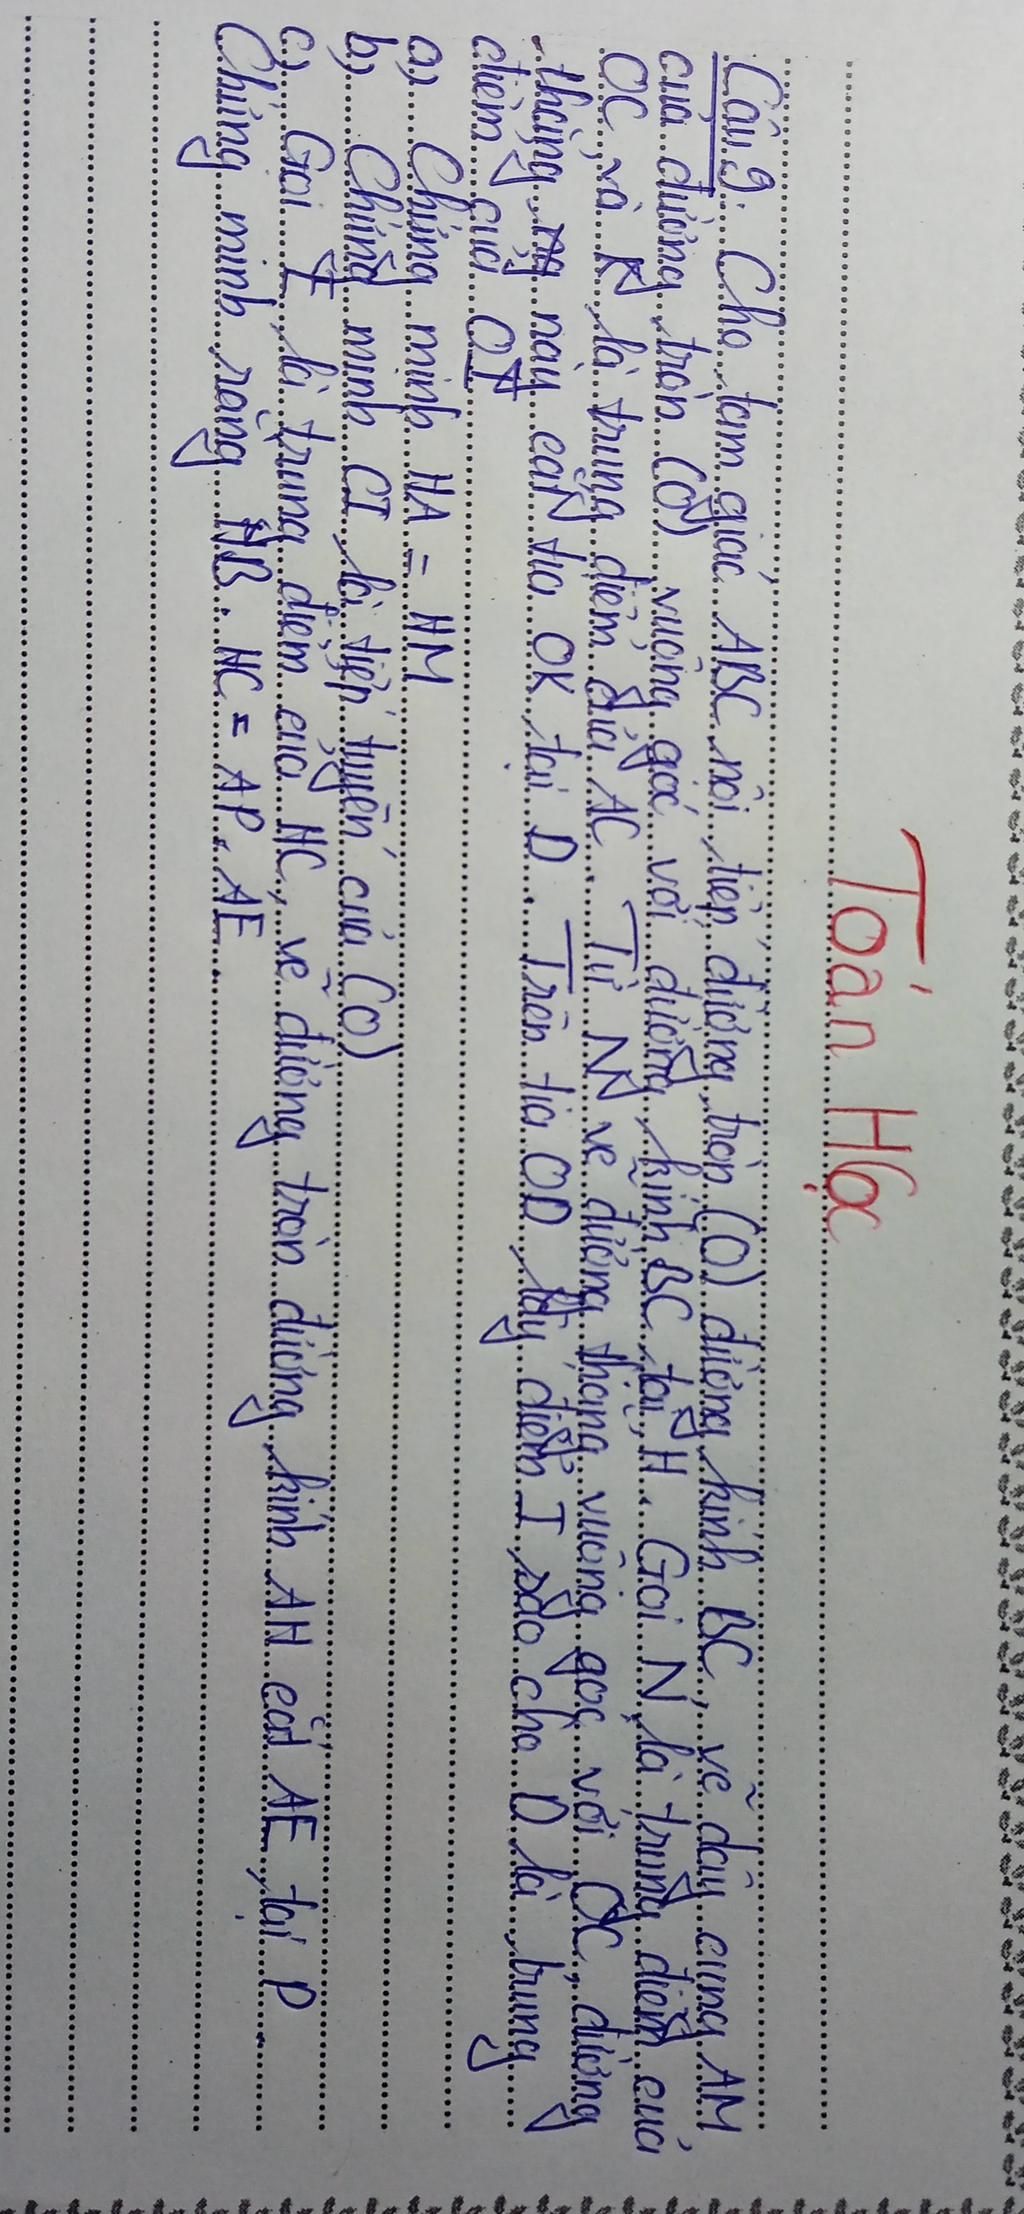 Toán Học
Câu 9: Cho tam giác ABC nôi tiếp đường tròn (O) đường kính BC, vẽ dây cung AM
của đường tròn (O) vuông góc với đường kính BC tại H. Gọi N là trung điểm của
OC và K là trung điểm của AC. Từ N vẽ đường thẳng vuông góc với OC, đường
thẳng này cắt tia OK tại D. Trên tia OD lấy điểm I sao cho D là trung
điểm của OI
a) Chứng minh HA = HM
b) Chứng minh CI là tiếp tuyến của (O)
c) Gọi E là trung điểm của HC, vẽ đường tròn đường kính AH cắt AE tại P.
Chứng minh rằng HB. HC = AP. AE.